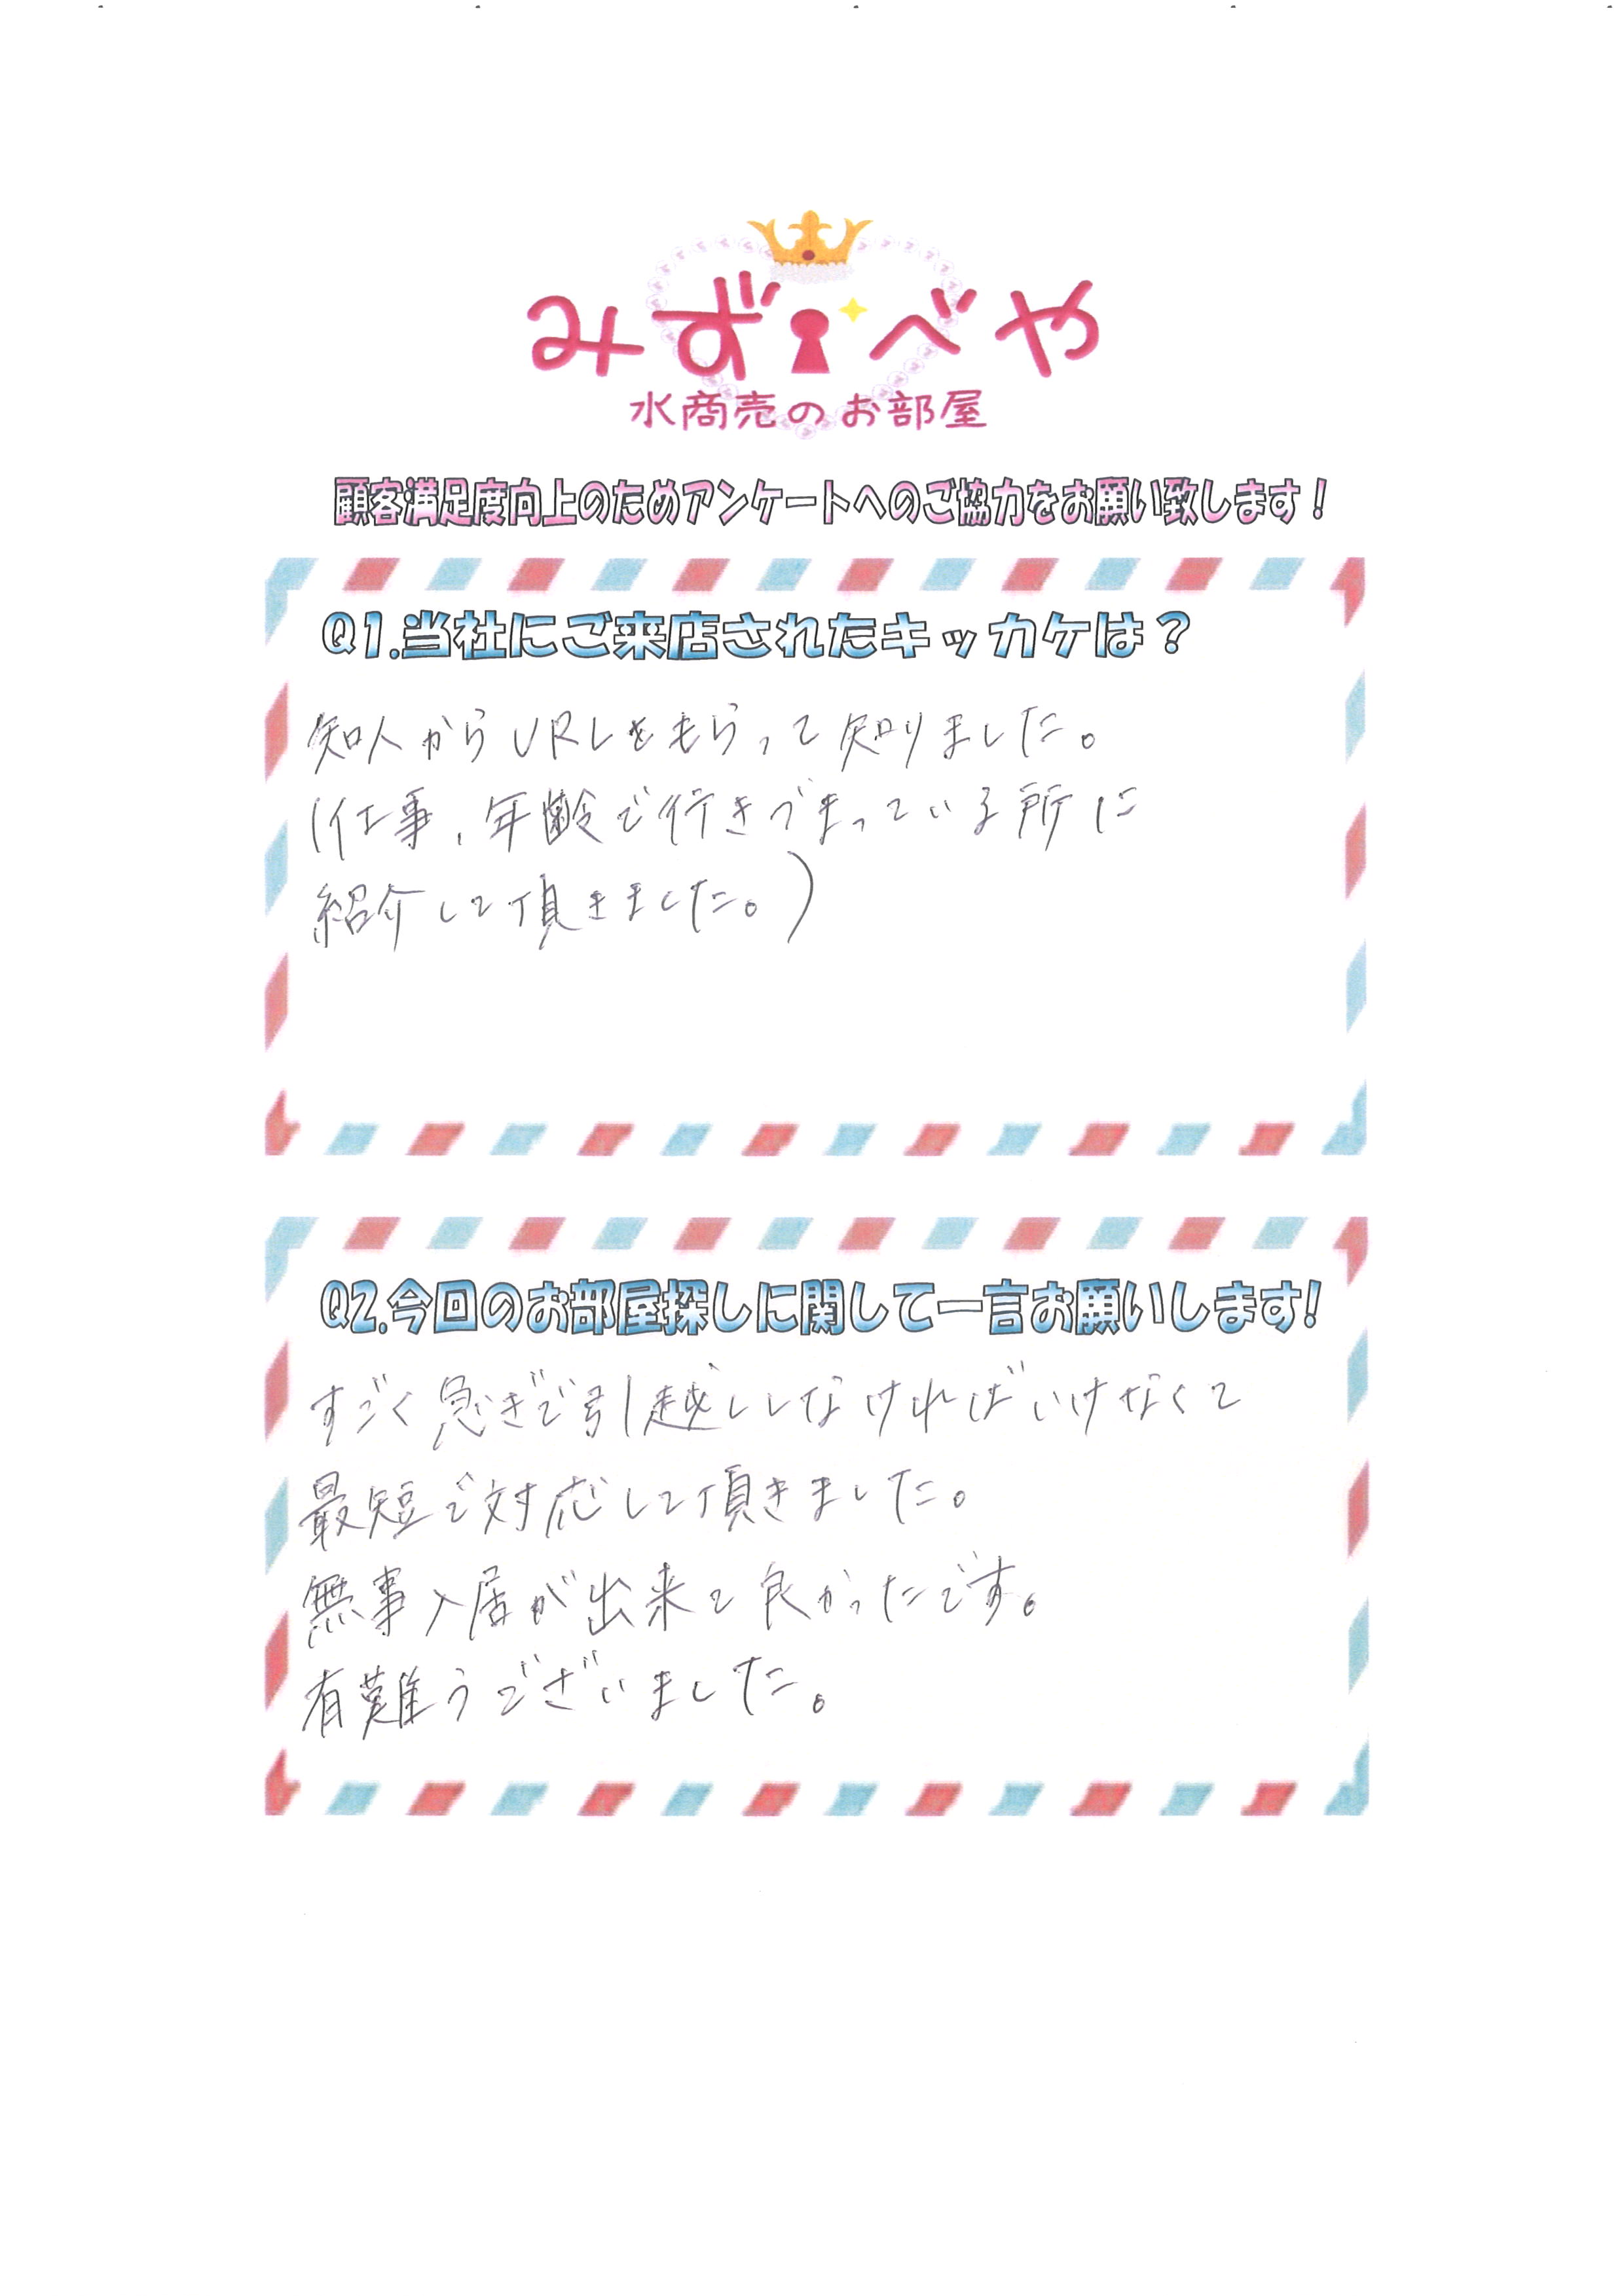 みずべや
水商売のお部屋
顧客満足度向上のためアンケートへのご協力をお願い致します!
Q1.当社にご来店されたキッカケは?
知人からURLをもらって知りました。
(仕事、年齢で行きづまっている所に
紹介して頂きました。)
Q2.今回のお部屋探しに関して一言お願いします!
すごく急ぎで引越ししなければいけなくて
最短で対応して頂きました。
無事入居が出来て良かったです。
有難うございました。